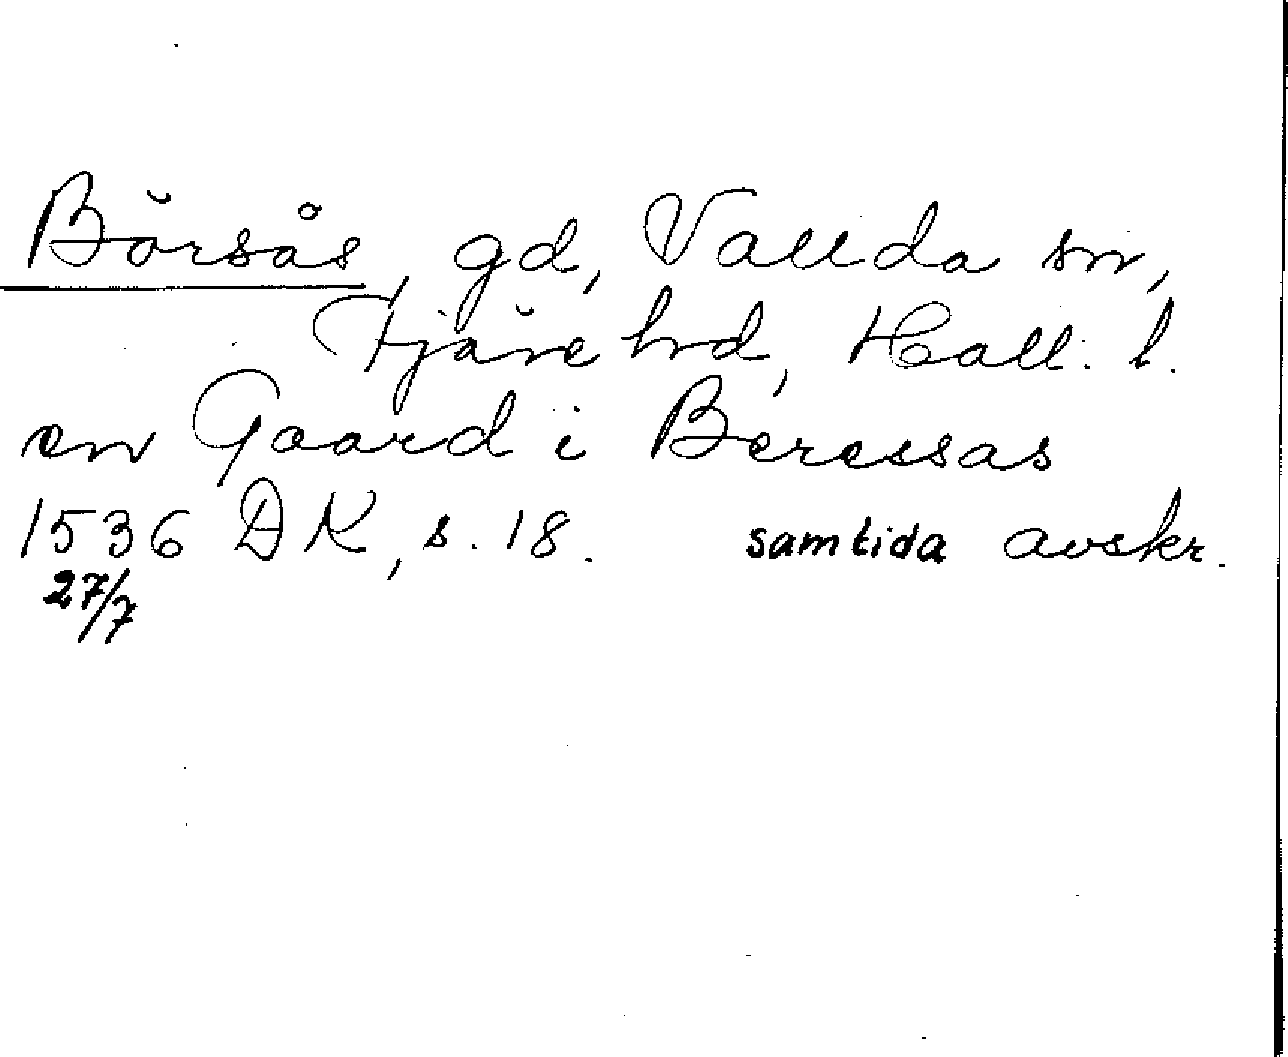 Börsås, gd, Vallda sn,
Fjäre hd, Hall. l.
en Gaard i Beressas
1536 DK, s. 18. samtida avskr.
27/7